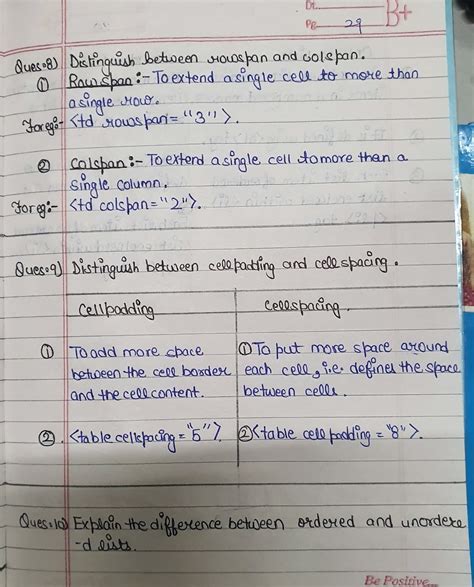 Dt.
Pg. 29
B+
Ques.8) Distinguish between rowspan and colspan.
① Rowspan :- To extend a single cell to more than
a single row.
For eg:- <td rowspan= "3">.
② Colspan :- To extend a single cell to more than a
single column.
For eg:- <td colspan="2">.
Ques.9) Distinguish between cellpadding and cellspacing.
Cellpadding
Cellspacing.
① To add more space
between the cell border
and the cell content.
① To put more space around
each cell, i.e. defines the space
between cells.
②. <table cellspacing = "5">.
② <table cell padding = "8">.
Ques.10) Explain the difference between ordered and unordere
-d lists.
Be Positive...